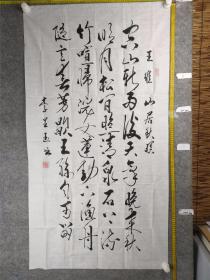 王維 山居秋暝
空山新雨後天氣晚來秋
明月松間照清泉石上流
竹喧歸浣女蓮動下漁舟
隨意春芳歇王孫自可留